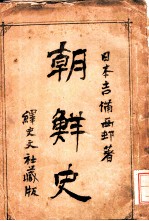 日本吉備西邨著
朝鮮史
鐸史文社藏版